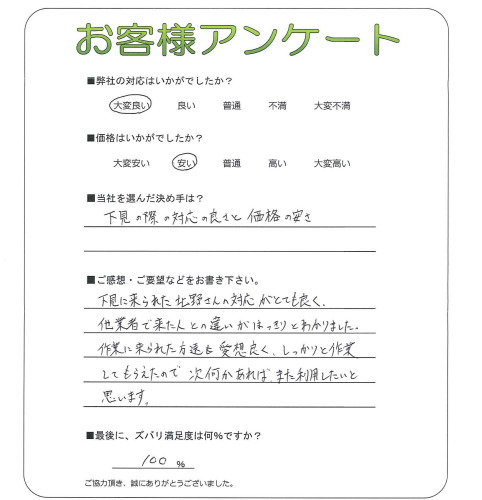 お客様アンケート
■弊社の対応はいかがでしたか？
大変良い 良い 普通 不満 大変不満
■価格はいかがでしたか？
大変安い 安い 普通 高い 大変高い
■当社を選んだ決め手は？
下見の際の対応の良さと価格の安さ
■ご感想・ご要望などをお書き下さい。
下見に来られた北野さんの対応がとても良く、
他業者で来た人との違いがはっきりとわかりました。
作業に来られた方達も愛想良く、しっかりと作業
してもらえたので次何かあれば、また利用したいと
思います。
■最後に、ズバリ満足度は何%ですか？
100 %
ご協力頂き、誠にありがとうございました。